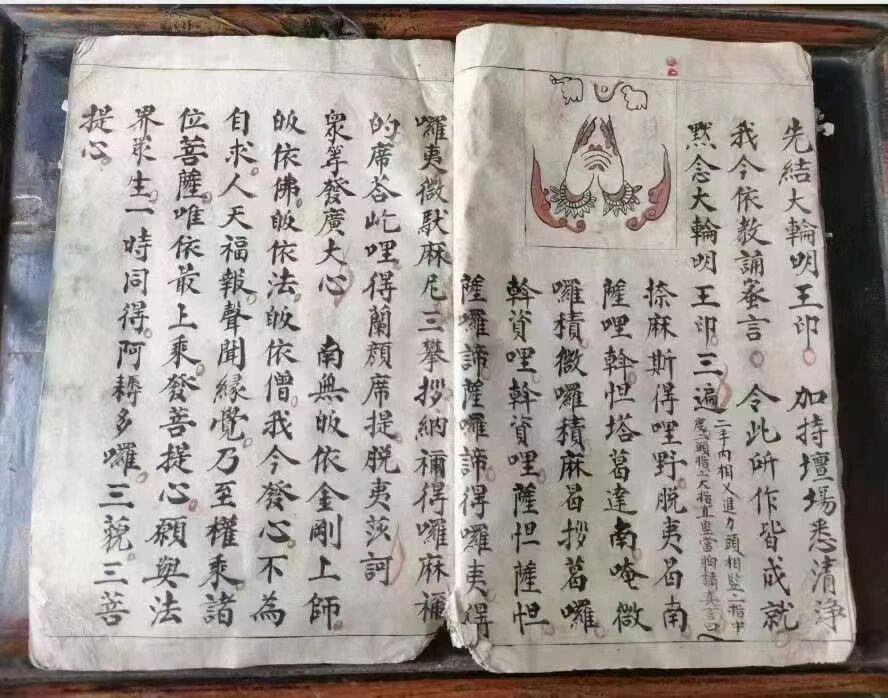 先結大輪明王印 加持壇場悉清淨
我今依教誦密言 令此所作皆成就
默念大輪明王印 三遍
二手內相乂進力頭相竪二指中
度二頭指二大指直竪當胸誦真言曰
捺麻斯得哩野脫夷曷南
薩哩斡怛塔葛達南唵微
囉積微囉積麻曷拶葛囉
斡資哩斡資哩薩怛薩怛
薩囉諦薩囉諦得囉夷得
囉夷微馱麻尼三攀拶納禰得囉麻禰
的席荅屹哩得蘭顔席提脫夷莎訶
衆等發廣大心 南無皈依金剛上師
皈依佛皈依法皈依僧我今發心不為
自求人天福報聲聞緣覺乃至權乘諸
位菩薩唯依最上乘發菩提心願與法
界眾生一時同得阿耨多囉三藐三菩
提心